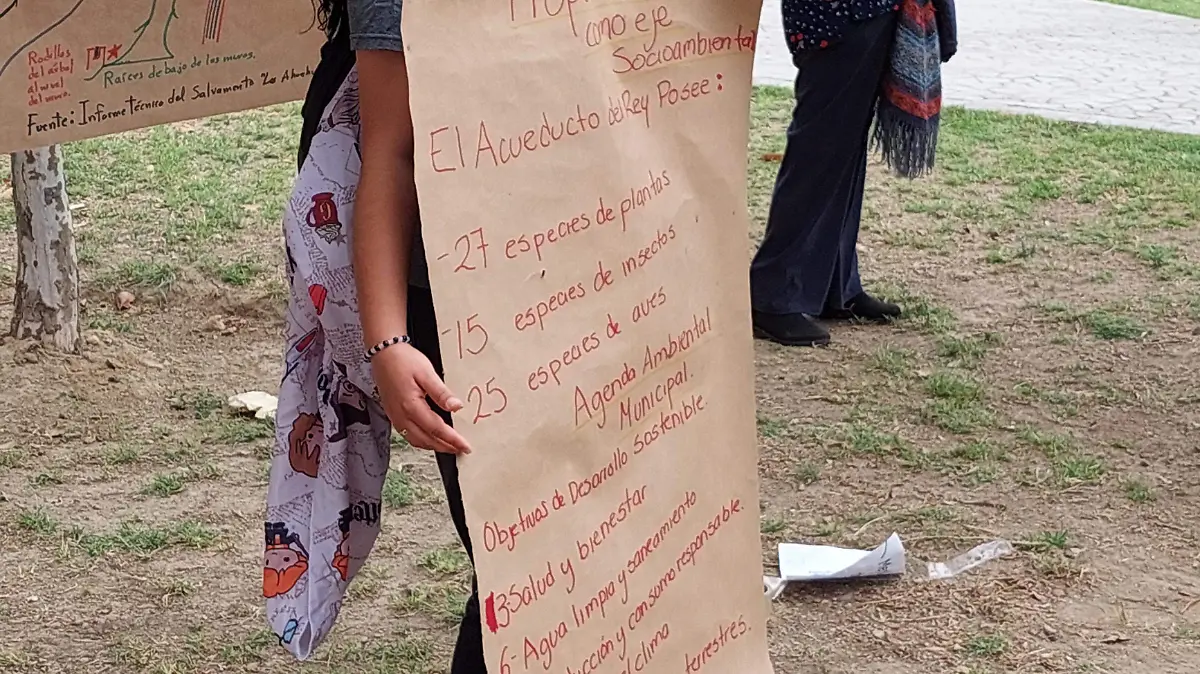 Rodillos
del árbol
al nivel
del muro.
Raíces debajo de los muros.
Fuente: Informe Técnico del Salvamento
como eje
Socioambiental
El Acueducto del Rey Posee:
-27 especies de plantas
-15 especies de insectos
25 especies de aves
Agenda Ambiental
Municipal.
Objetivos de Desarrollo Sostenible
3-Salud y bienestar
6-Agua limpia y saneamiento
ucción y consumo responsable.
el clima
terrestres.